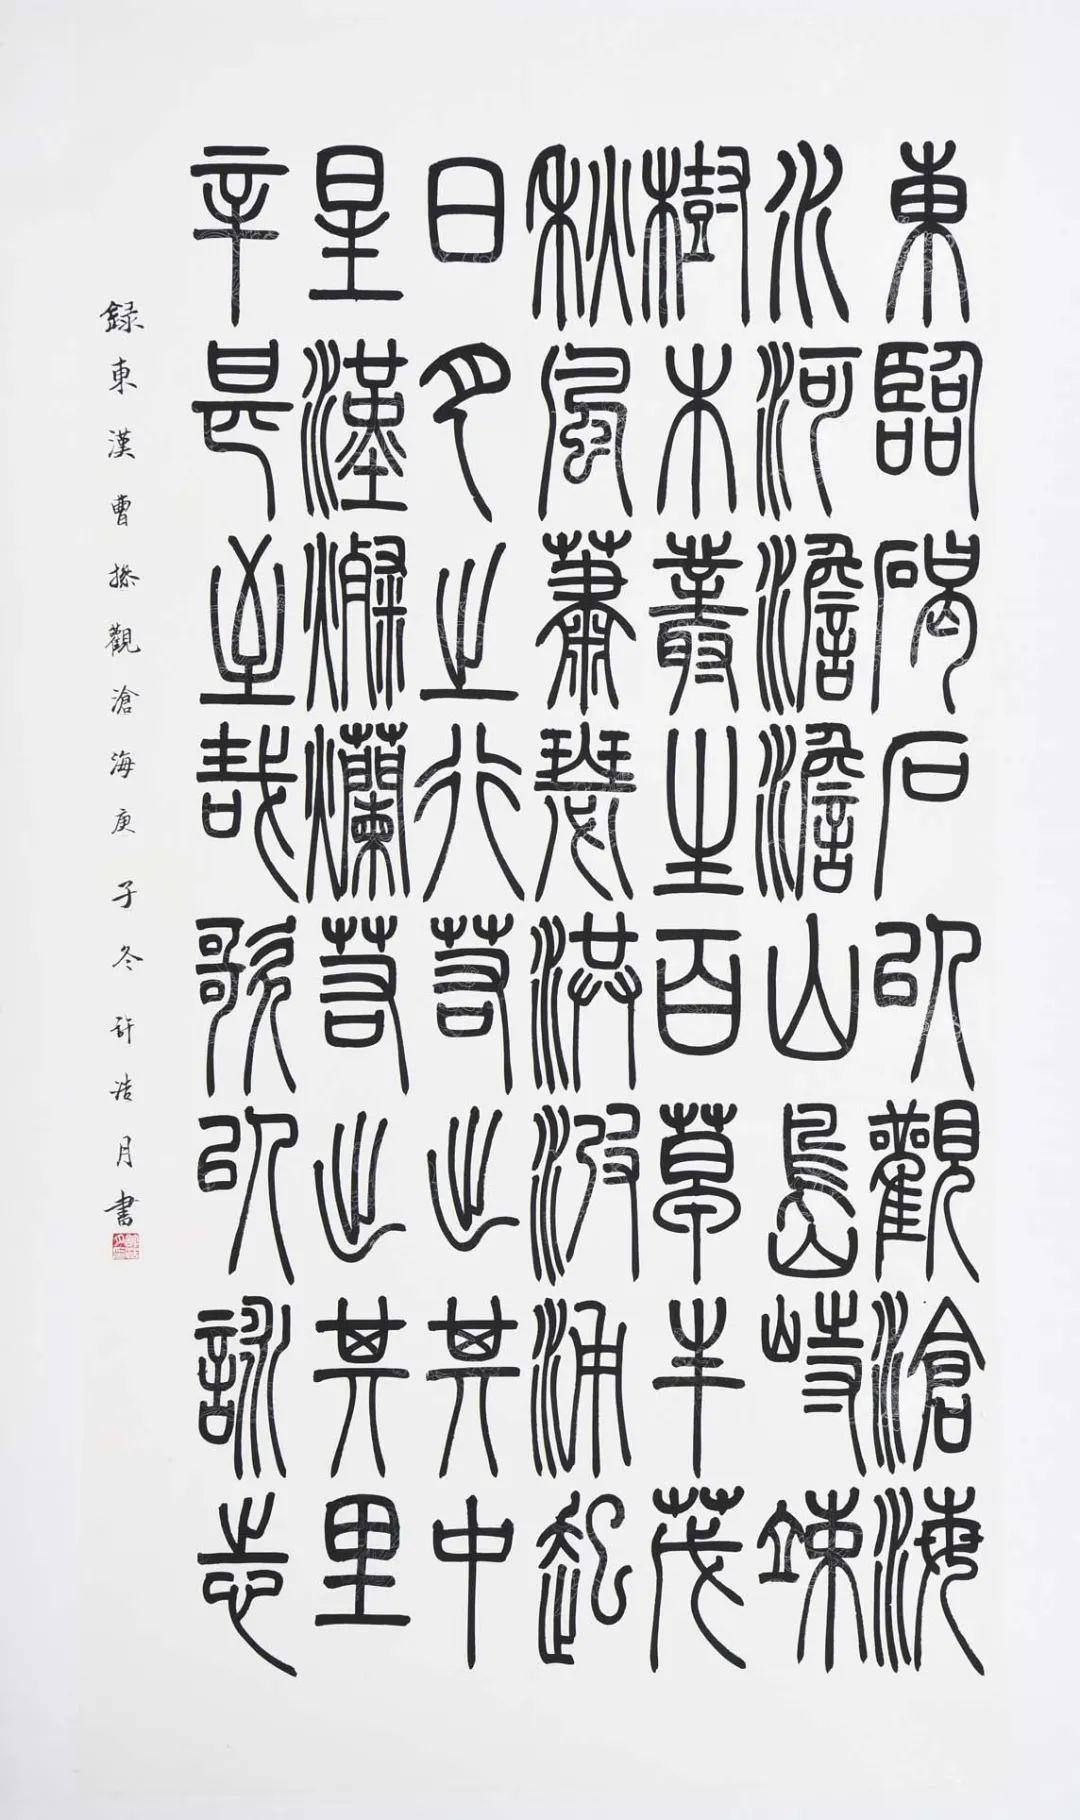 東臨碣石以觀滄海
水河澹澹山島峙竦
樹木叢生百草丰茂
秋風蕭瑟洪波涌起
日月之行若出其中
星漢燦爛若出其里
幸甚至哉歌以詠志
録東漢曹操觀滄海庚子冬許浩月書